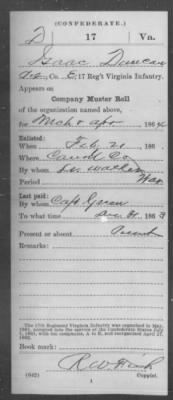 (CONFEDERATE.)
D 17 Va.
Isaac Duncan
Co. E, 17 Reg't Virginia Infantry.
Appears on
Company Muster Roll
of the organization named above,
for Mch & Apr, 1864
Enlisted:
When Feb 21, 186
Where Co
By whom
Period War
Last paid:
By whom Capt Green
To what time Dec 31, 1863
Present or absent Present
Remarks:
The 17th Regiment Virginia Infantry was organized in May,
1861, accepted into the service of the Confederate States July
1, 1861, with ten companies, A to K, and reorganized April 27,
1862.
Book mark:
R W
(642) Copyist.
1